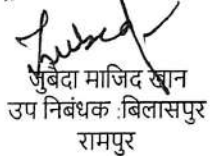 जुबैदा माजिद खान
उप निबंधक :बिलासपुर
रामपुर